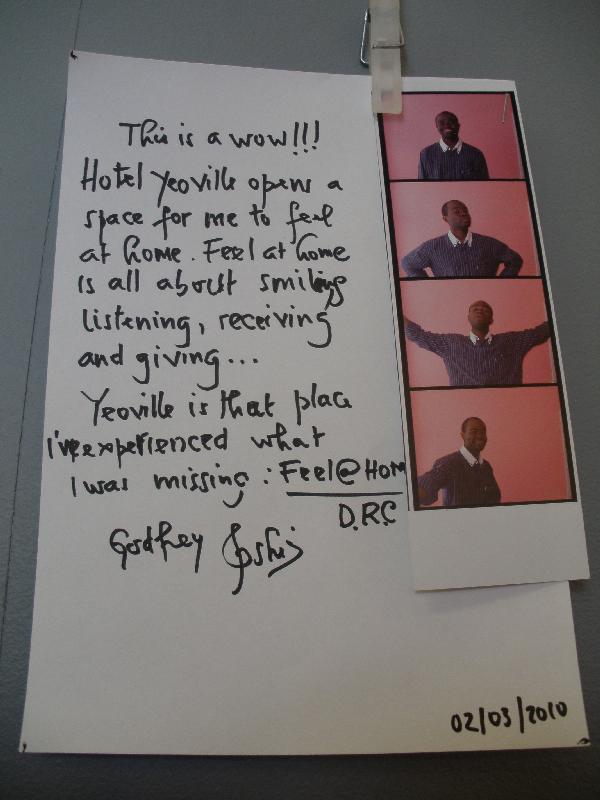 This is a wow!!!
Hotel Yeoville opens a
space for me to feel
at home. Feel at home
is all about smiling
listening, receiving
and giving...
Yeoville is that place
I've experienced what
I was missing: Feel@Hom
D.R.C
Godfrey
02/03/2010